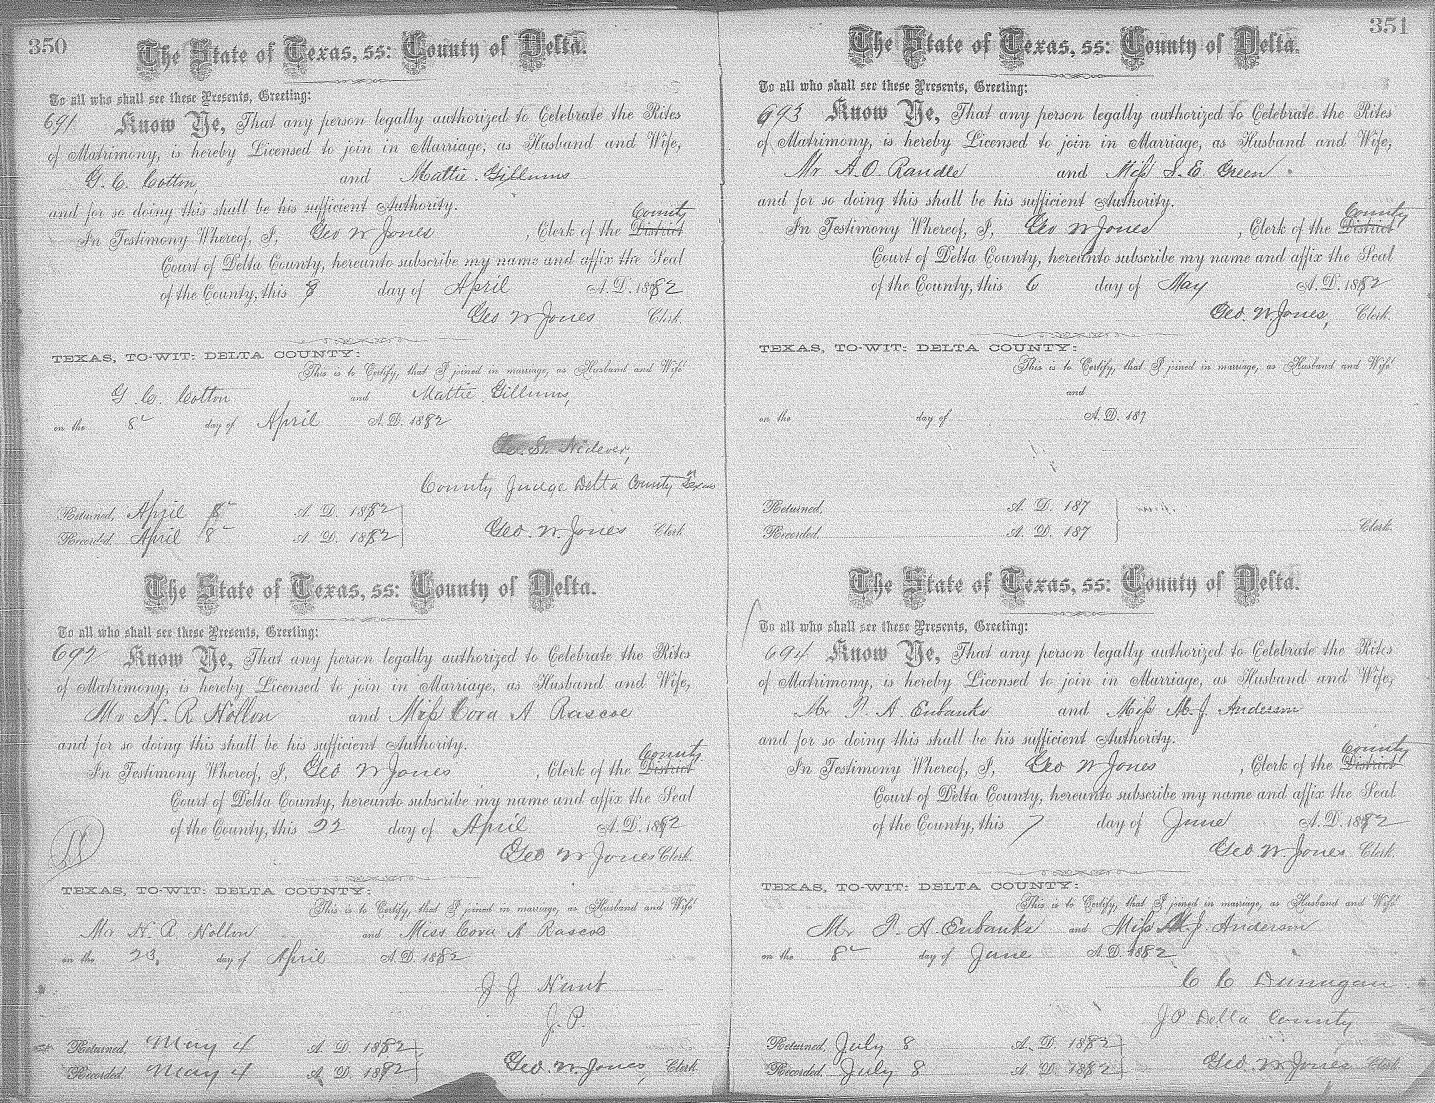 350
The State of Texas, ss: County of Delta.
To all who shall see these Presents, Greeting:
691 Know Ye, That any person legally authorized to Celebrate the Rites
of Matrimony, is hereby Licensed to join in Marriage, as Husband and Wife,
G. C. Cotton and Mattie Gillums
and for so doing this shall be his sufficient Authority.
County
In Testimony Whereof, I, Geo W Jones, Clerk of the District
Court of Delta County, hereunto subscribe my name and affix the Seal
of the County, this 8 day of April A. D. 1882
Geo W Jones Clerk.
TEXAS, TO-WIT: DELTA COUNTY:
This is to Certify, that I joined in marriage, as Husband and Wife
G. C. Cotton and Mattie Gillums,
on the 8 day of April A. D. 1882
County Judge Delta County Texas
Returned, April 8 A. D. 1882
Recorded. April 8 A. D. 1882 Geo. W. Jones Clerk
The State of Texas, ss: County of Delta.
To all who shall see these Presents, Greeting:
692 Know Ye, That any person legally authorized to Celebrate the Rites
of Matrimony, is hereby Licensed to join in Marriage, as Husband and Wife,
Mr N. R. Nollon and Miss Cora A Rascoe
and for so doing this shall be his sufficient Authority.
County
In Testimony Whereof, I, Geo W Jones, Clerk of the District
Court of Delta County, hereunto subscribe my name and affix the Seal
of the County, this 22 day of April A. D. 1882
Geo W Jones Clerk.
TEXAS, TO-WIT: DELTA COUNTY:
This is to Certify, that I joined in marriage, as Husband and Wife
Mr N. R. Nollon and Miss Cora A Rascoe
on the 23, day of April A. D. 1882
J J Hunt
J. P.
Returned, May 4 A. D. 1882
Recorded. May 4 A. D. 1882 Geo. W. Jones, Clerk.
351
The State of Texas, ss: County of Delta.
To all who shall see these Presents, Greeting:
693 Know Ye, That any person legally authorized to Celebrate the Rites
of Matrimony, is hereby Licensed to join in Marriage, as Husband and Wife,
Mr A. O. Randle and Miss S. E. Green
and for so doing this shall be his sufficient Authority.
County
In Testimony Whereof, I, Geo W Jones, Clerk of the District
Court of Delta County, hereunto subscribe my name and affix the Seal
of the County, this 6 day of May A. D. 1882
Geo. W. Jones, Clerk
TEXAS, TO-WIT: DELTA COUNTY:
This is to Certify, that I joined in marriage, as Husband and Wife
and
on the day of A. D. 187
Returned, A. D. 187
Recorded. A. D. 187 Clerk.
The State of Texas, ss: County of Delta.
To all who shall see these Presents, Greeting:
694 Know Ye, That any person legally authorized to Celebrate the Rites
of Matrimony, is hereby Licensed to join in Marriage, as Husband and Wife,
Mr P. A Eubanks and Miss M. J. Anderson
and for so doing this shall be his sufficient Authority.
County
In Testimony Whereof, I, Geo W Jones, Clerk of the District
Court of Delta County, hereunto subscribe my name and affix the Seal
of the County, this 7 day of June A. D. 1882
Geo. W. Jones Clerk.
TEXAS, TO-WIT: DELTA COUNTY:
This is to Certify, that I joined in marriage, as Husband and Wife
Mr P. A Eubanks and Miss M. J. Anderson
on the 8 day of June A. D. 1882
C C Dunagan
J P Delta County
Returned, July 8 A. D. 1882
Recorded. July 8 A. D. 1882 Geo. W. Jones Clerk.